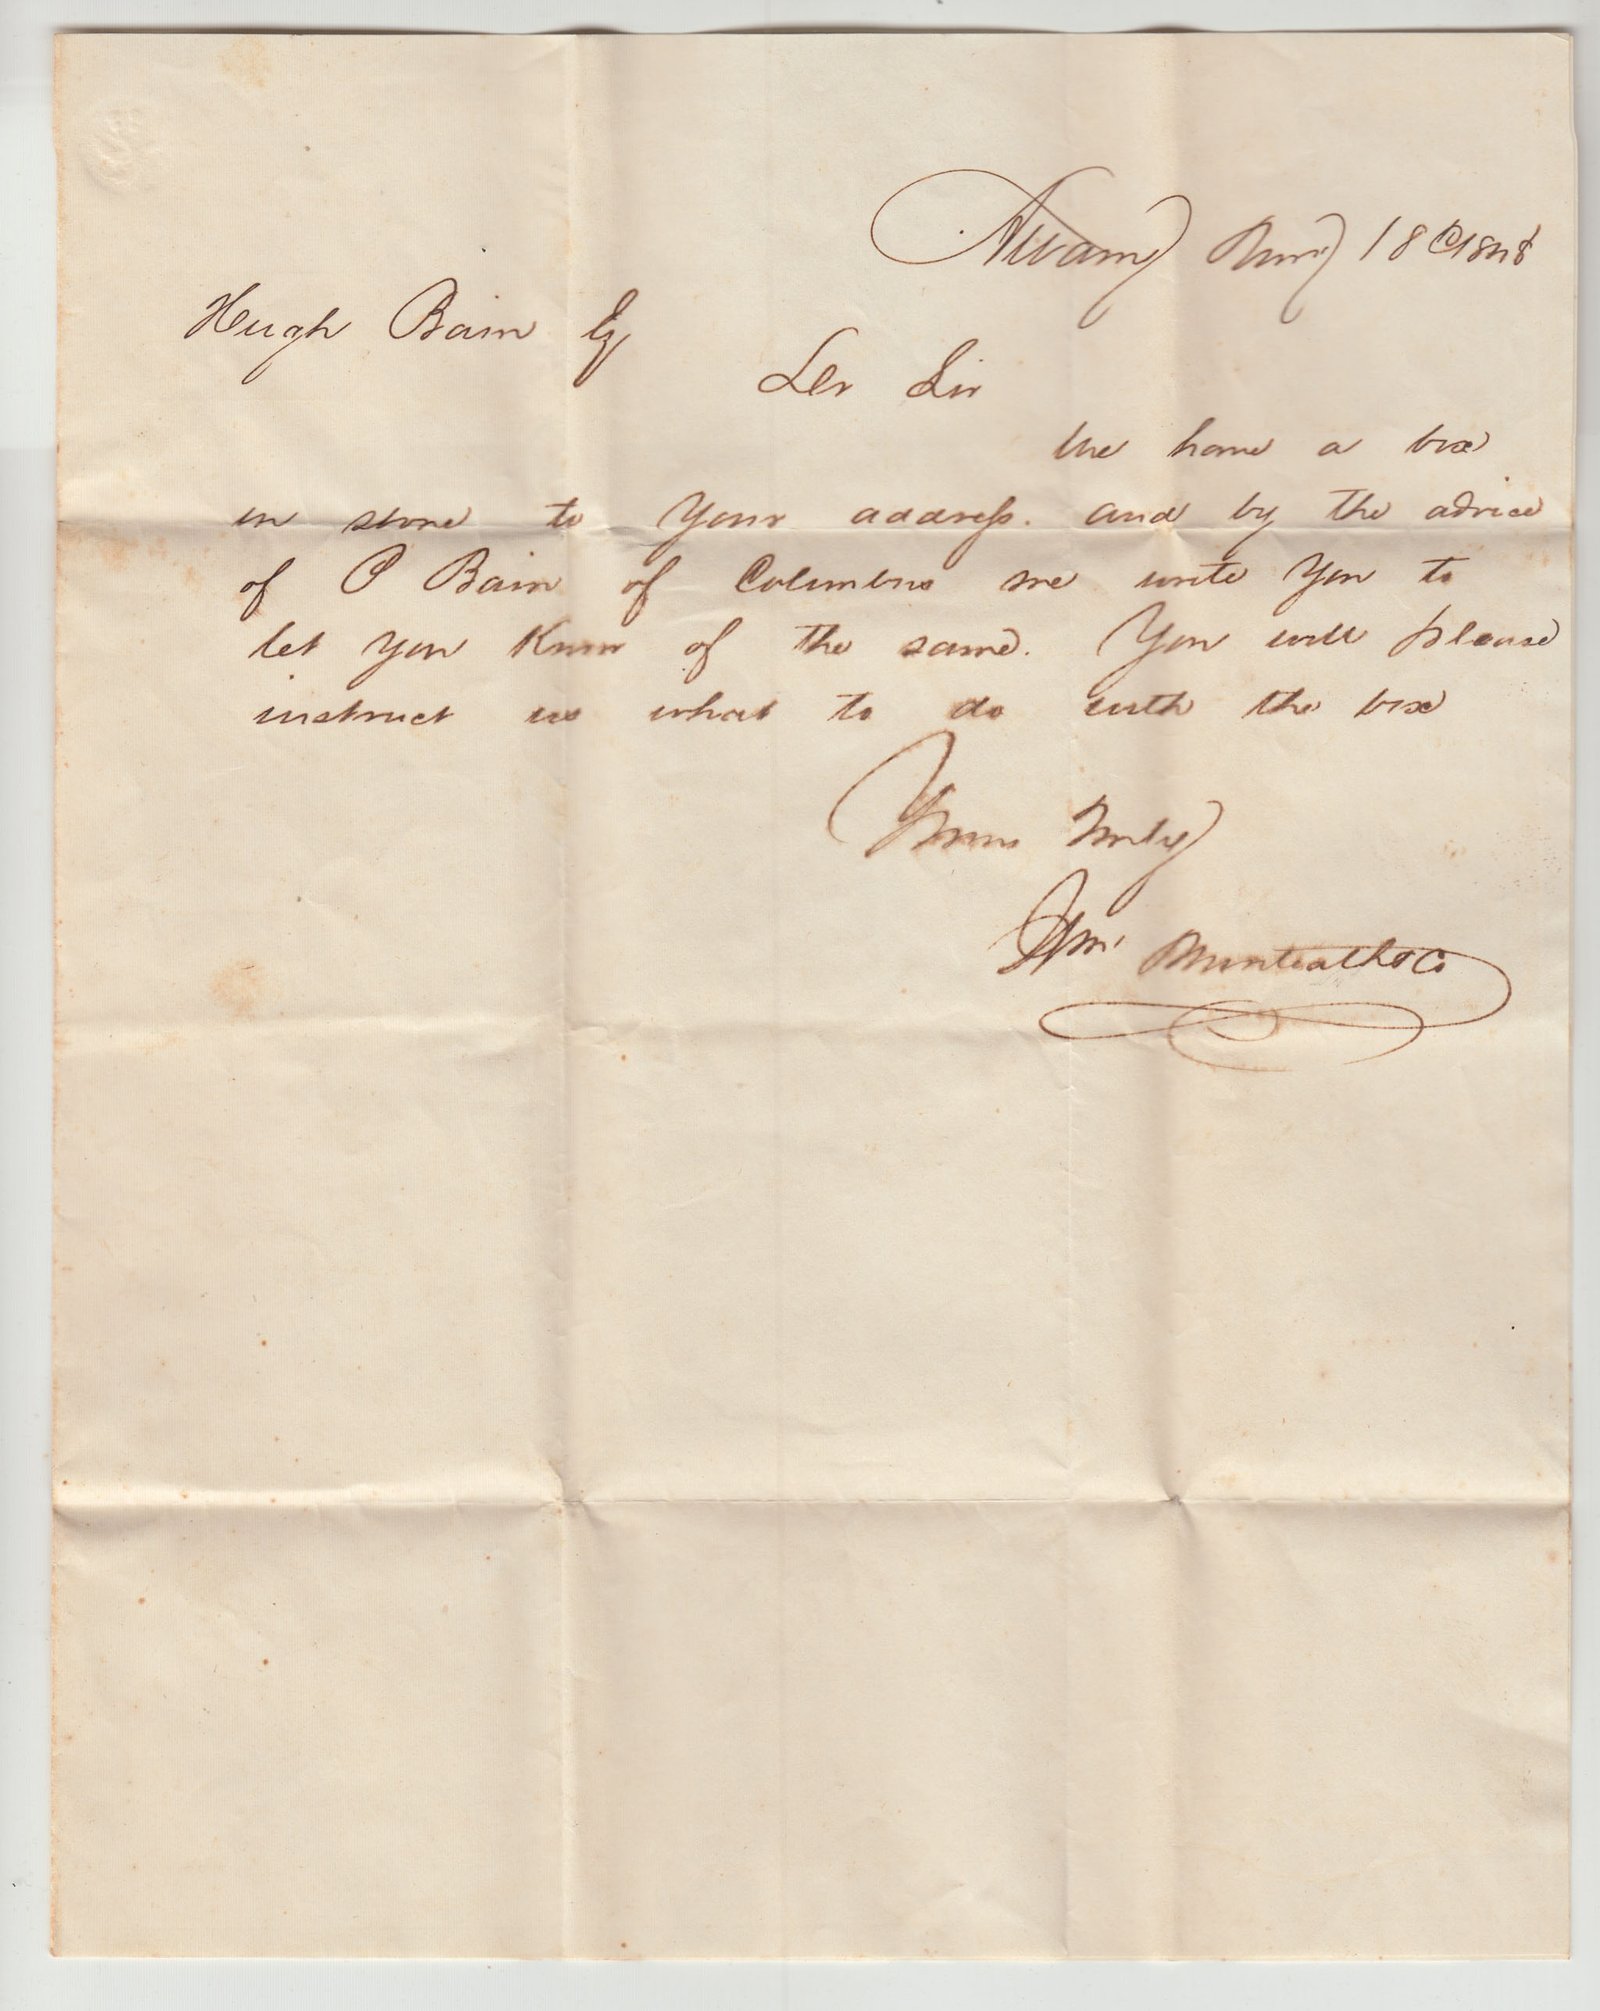 Albany 18th 1848
Hugh Bain Esq
Dr Sir
We have a box
in store to your address. and by the advice
of P Bain of Columbus we write you to
let you know of the same. You will please
instruct us what to do with the box
Yours Truly
Wm Monteath & Co